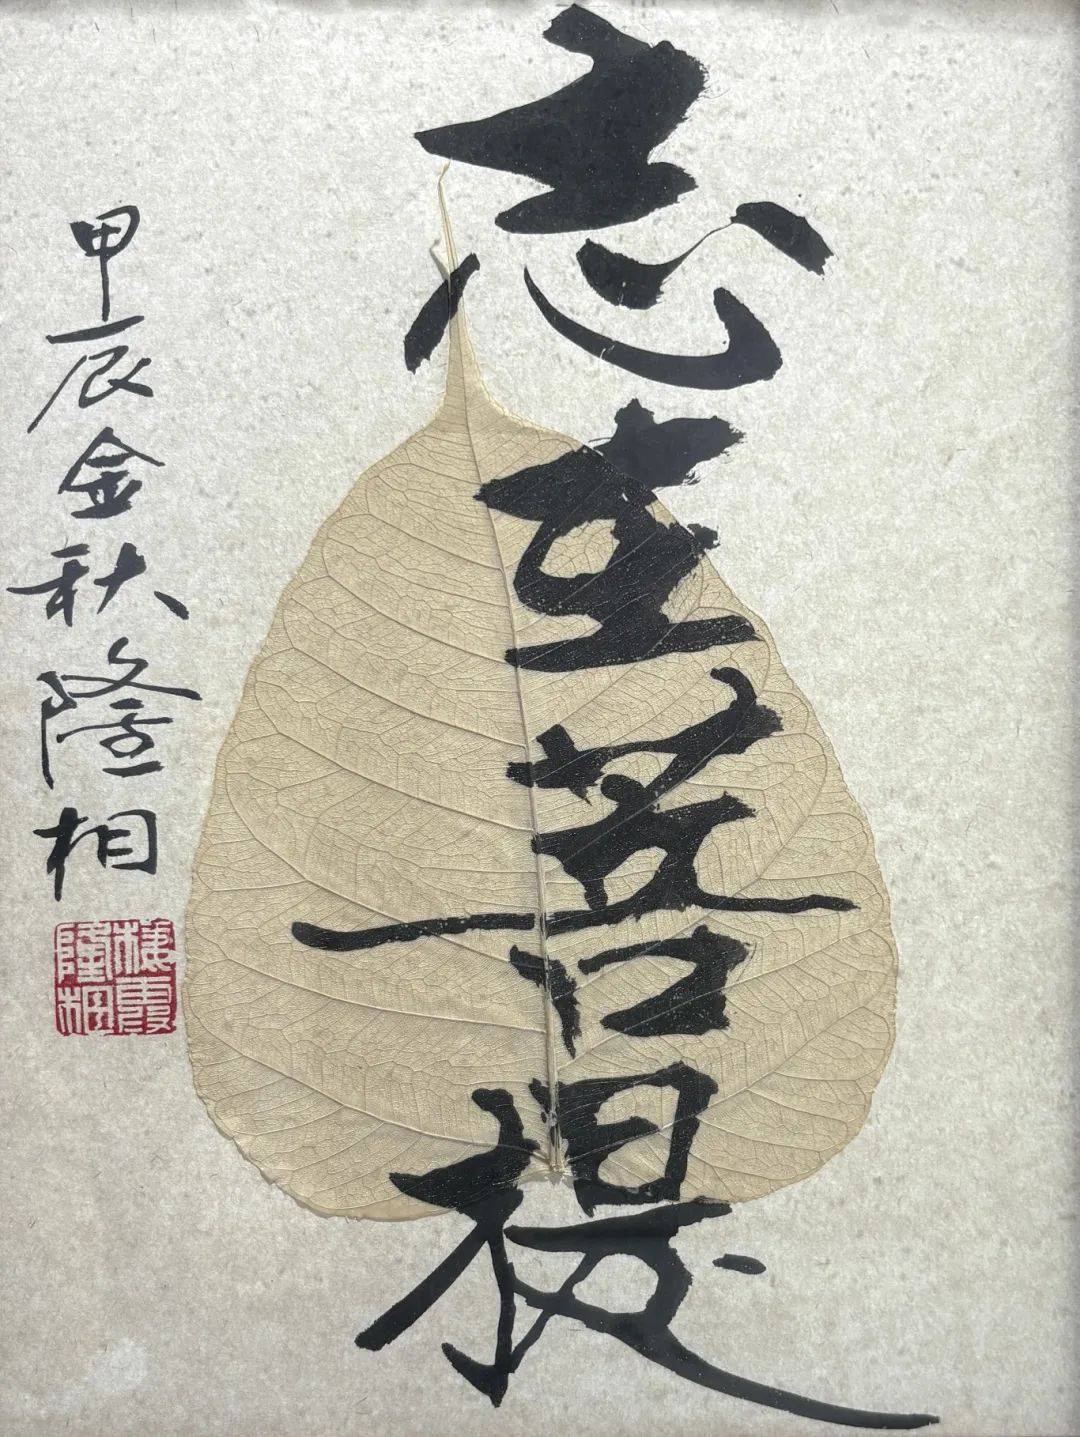 志在菩提
甲辰金秋隆相
棲霞
隆相